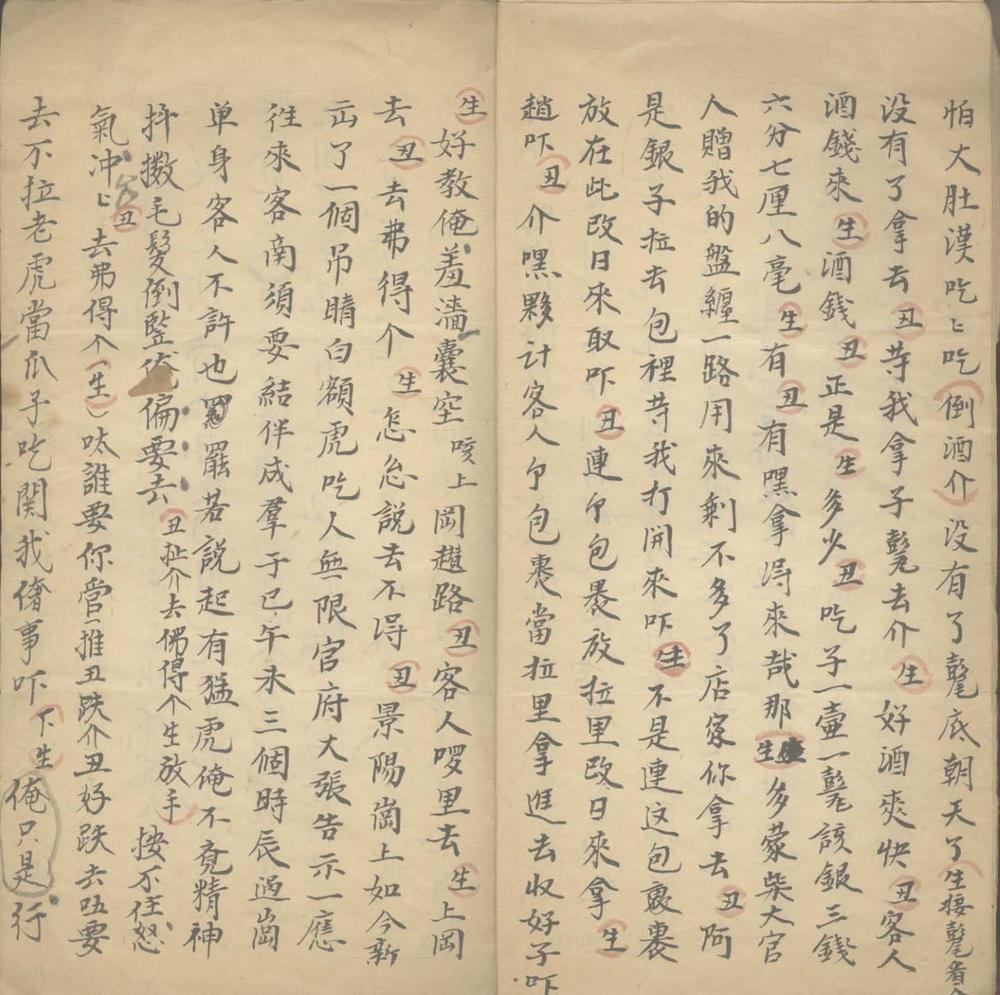 怕大肚漢吃〻吃(倒酒介)没有了鼇底朝天了生接鼇看介
没有了拿去丑等我拿子鼇去介生好酒爽快丑客人
酒錢來生酒錢丑正是生多少丑吃子一壺一鼇該銀三錢
六分七厘八毫生有丑有嘿拿得來哉那生多蒙柴大官
人贈我的盤纏一路用來剩不多了店家你拿去丑阿
是銀子拉去包裡等我打開來吓生不是連这包裹裹
放在此改日來取吓丑連个包褁放拉里改日來拿生
趙吓丑介嘿夥计客人个包裹當拉里拿進去收好子吓
生好教俺羞濇囊空咳上岡趲路丑客人啰里去生上岡
去丑去弗得个生怎怎説去不得丑景陽崗上如今新
出了一個吊睛白額虎吃人無限官府大張告示一應
徃來客南須要結伴成羣于巳午未三個時辰過崗
单身客人不許也罷若説起有猛虎俺不竟精神
抖擻毛髮倒竪偏要去丑扯介去佛得个生放手按不住怒
氣冲〻丑去弗得个(生)呔誰要你管推丑跌介丑好跌去呒要
去不拉老虎當爪子吃関我僋事吓下生俺只是行